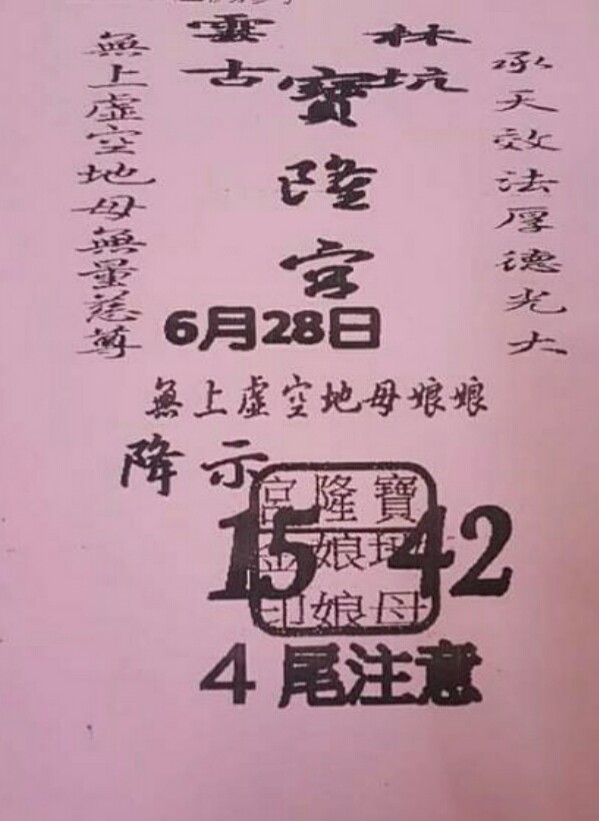 雲林
古坑
寶隆宮
無上虛空地母無量慈尊
承天效法厚德光大
6月28日
無上虛空地母娘娘
降示
15 42
寶隆宮
地母娘娘金印
4尾注意